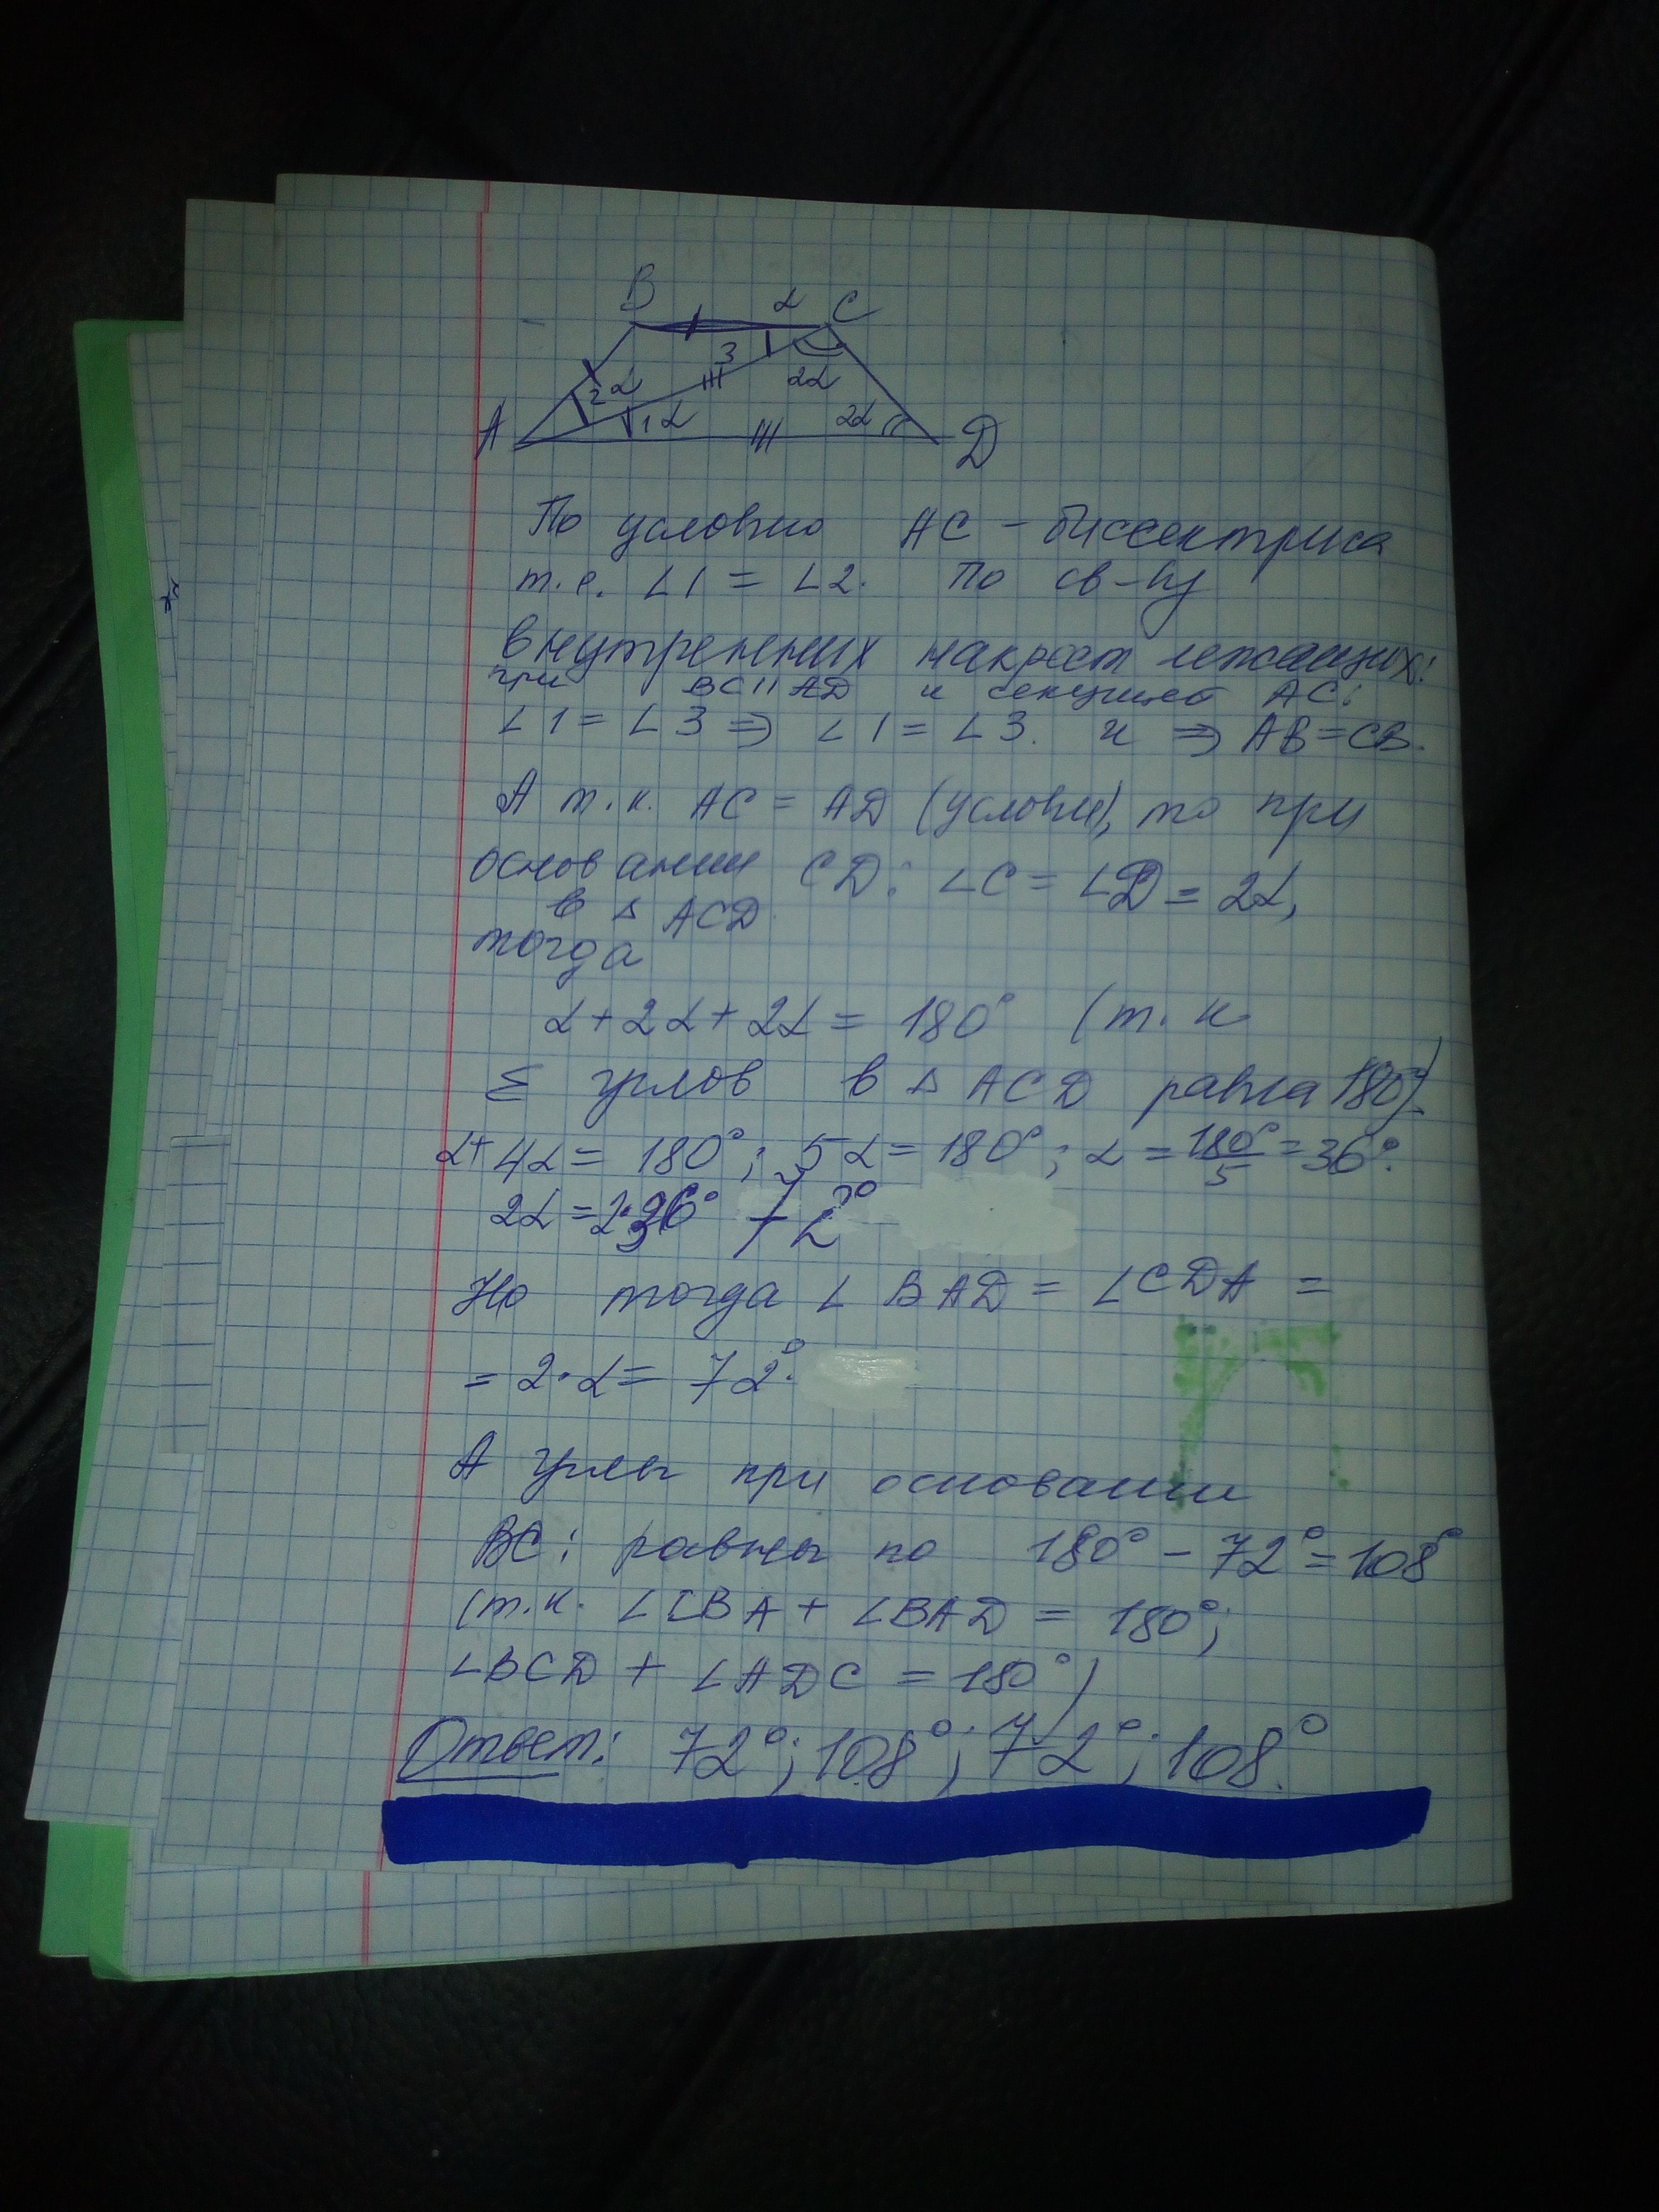 B α C
3
2 α 2α
A 1 α 2α D
По условию AC - биссектриса
т.е. ∠1 = ∠2. По св-ву
внутренних накрест лежащих:
при BC || AD и секущей AC:
∠1 = ∠3 ⇒ ∠1 = ∠3. и ⇒ AB = CB.
А т.к. AC = AD (условие), то при
основании CD: ∠C = ∠D = 2α,
в △ ACD
тогда
α + 2α + 2α = 180° (т.к
Σ углов в △ ACD равна 180°).
α + 4α = 180°; 5α = 180°; α = 180°/5 = 36°.
2α = 2·36° 72°
Но тогда ∠ BAD = ∠CDA =
= 2·α = 72°.
А углы при основании
BC: равны по 180° - 72° = 108°
(т.к. ∠CBA + ∠BAD = 180°;
∠BCD + ∠ADC = 180°)
Ответ: 72°; 108°; 72°; 108°.